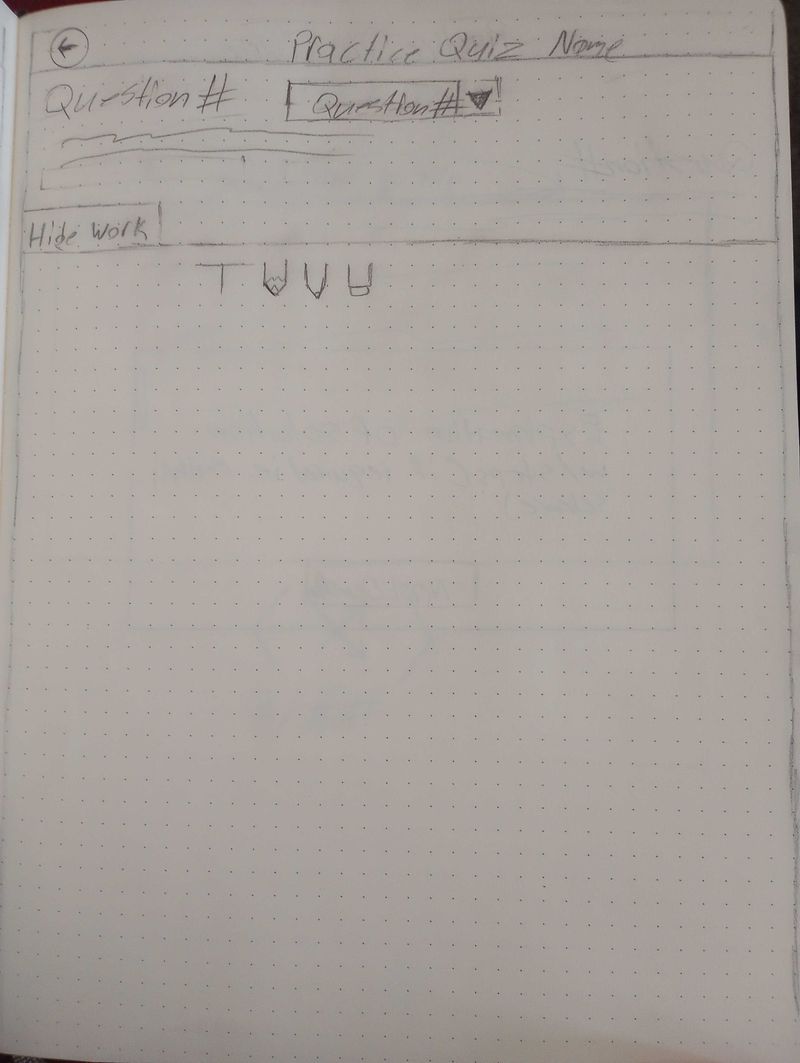 Practice Quiz Name
Question# Question#
Hide Work
T